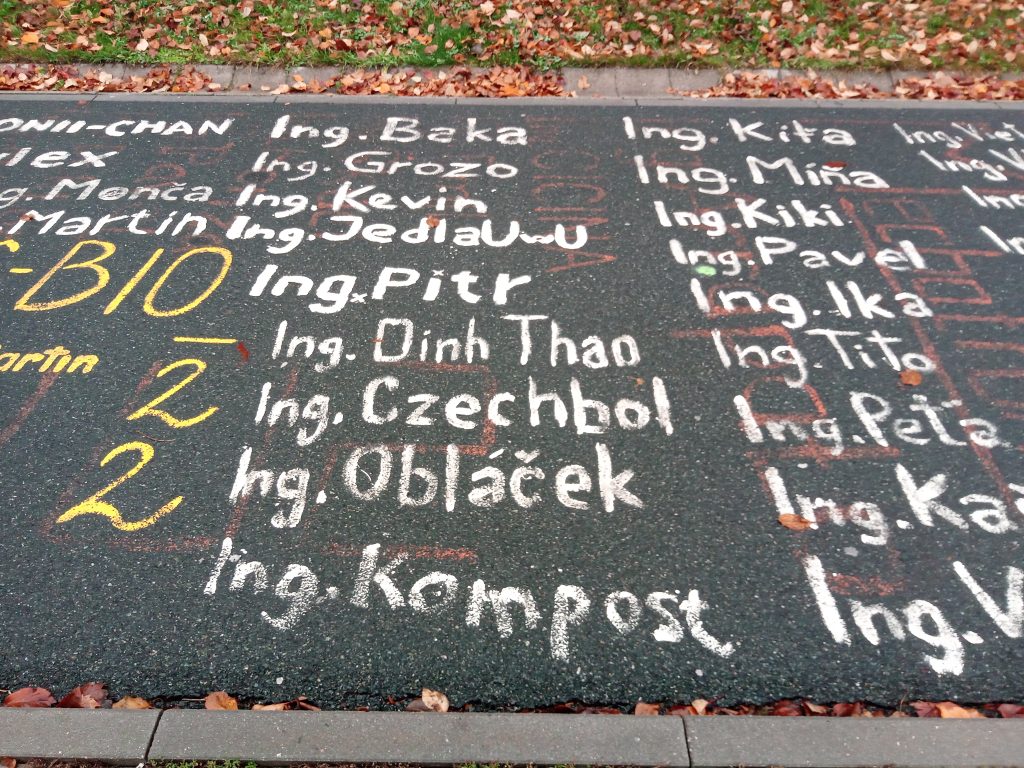 ONII-CHAN
Menča
Martin
-BIO
2
2
Ing. Baka
Ing. Grozo
Ing. Kevin
Ing. JedlaUwU
Ing. Pitr
Ing. Dinh Thao
Ing. Czechbol
Ing. Obláček
Ing. Kompost
Ing. Kita
Ing. Míňa
Ing. Kiki
Ing. Pavel
Ing. Ika
Ing. Tito
Ing. Peťa
Ing.
Ing.
Ing.
Ing.